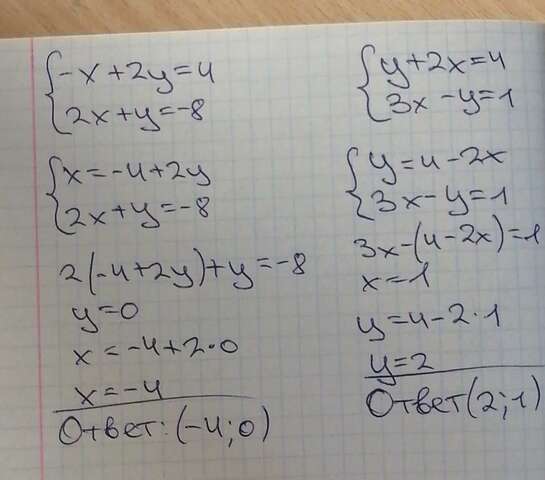 -x+2y=4
2x+y=-8
x=-4+2y
2x+y=-8
2(-4+2y)+y=-8
y=0
x=-4+2·0
x=-4
Ответ: (-4;0)
y+2x=4
3x-y=1
y=4-2x
3x-y=1
3x-(4-2x)=1
x=1
y=4-2·1
y=2
Ответ(2;1)